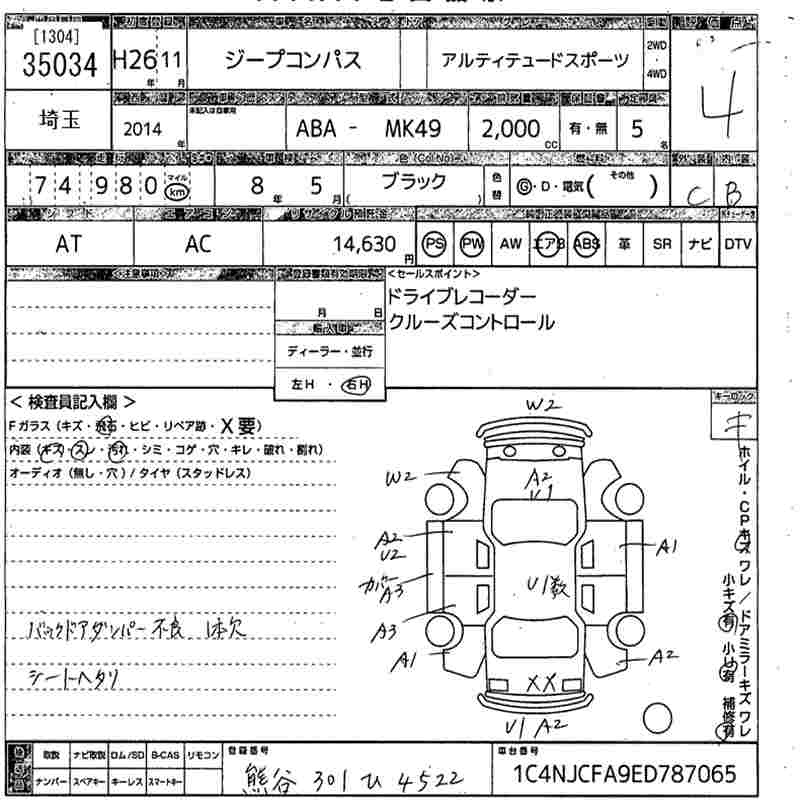 [1304]
35034
H26 11
年 月
ジープコンパス
アルティテュードスポーツ
2WD
4WD
4
埼玉
2014 年
未記入は自家用
ABA - MK49
2,000 CC
有・無
5 名
74980 マイル km
8 年 5 月
色(Col No)
ブラック
色替
G・D・電気( その他 )
C B
AT
AC
14,630 円
PS PW AW エアB ABS 革 SR ナビ DTV
<注意事項>
月 日
輸入車
ディーラー・並行
左H・右H
<セールスポイント>
ドライブレコーダー
クルーズコントロール
< 検査員記入欄 >
Fガラス(キズ・飛石・ヒビ・リペア跡・X要)
内装(キズ・スレ・汚れ・シミ・コゲ・穴・キレ・破れ・割れ)
オーディオ(無し・穴)/タイヤ(スタッドレス)
バックドアダンパー不良 1本欠
シートヘタリ
キーロック
キ
W2
W2
A2
U1
A2
U2
A1
カバー
A3
U1数
A3
A1
A2
XX
U1 A2
ホイル・CPキズ ワレ/ドアミラーキズ ワレ
小キズ有 小U有 補修有
取説 ナビ取説 ロム/SD B-CAS リモコン
ナンバー スペアキー キーレス スマートキー
登録番号
熊谷 301 ひ 4522
車台番号
1C4NJCFA9ED787065